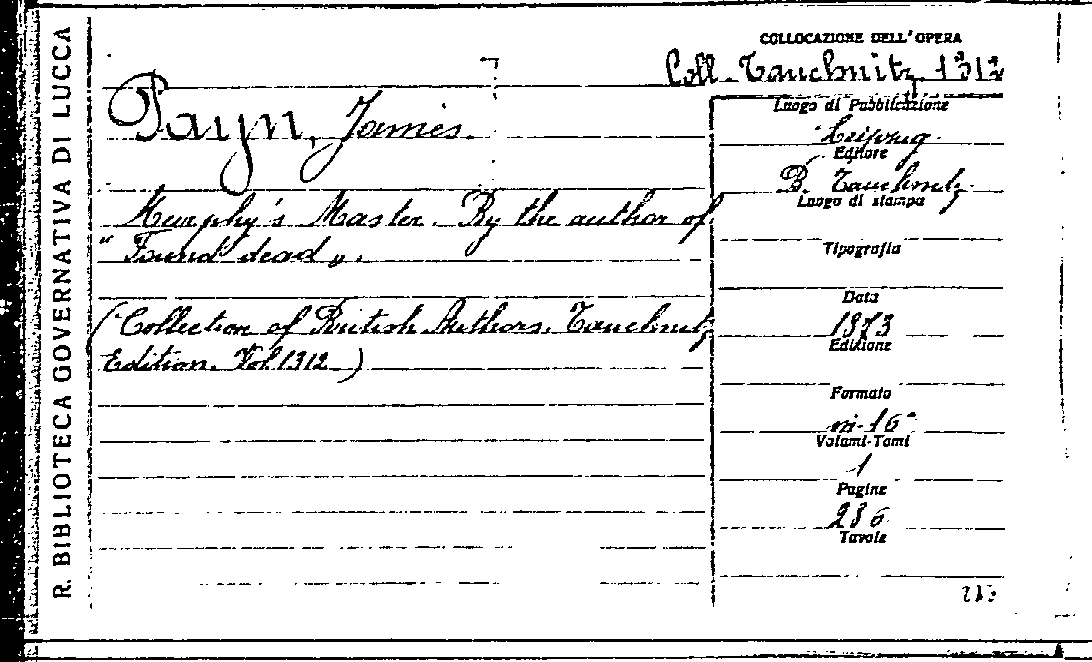 R. BIBLIOTECA GOVERNATIVA DI LUCCA
COLLOCAZIONE DELL'OPERA
Coll. Tauchnitz 1312
Payn, James.
Murphy's Master. By the author of
"Found dead".
(Collection of British Authors. Tauchnitz
Edition. Vol. 1312.)
Luogo di Pubblicazione
Leipzig
Editore
B. Tauchnitz
Luogo di stampa
Tipografia
Data
1873
Edizione
Formato
in-16°
Volumi-Tomi
1
Pagine
286
Tavole